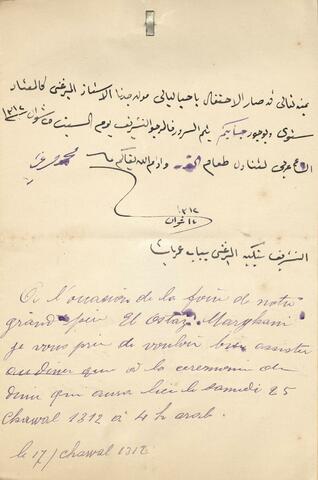 بمنه تعالى قد صار الاحتفال باحيا ليالى مولد جدنا الاستاذ الميرغنى كالمعتاد
سنوى وبوجود جنابكم يتم السرور فالرجو التشريف يوم السبت شوال ١٣١٢
عربى لتناول طعام وادام الله بقاكم
١٣١٢
١٧ شوال
التشريف بتكية الميرغنى بباب
A l'occasion de la foire de notre
grand père El Ostaz Marghani
je vous prie de vouloir bien assister
au diner que a la ceremonie du
diner qui aura lieu le samedi 25
Chawal 1312 à 4 h arab.
le 17/ chawal 1312